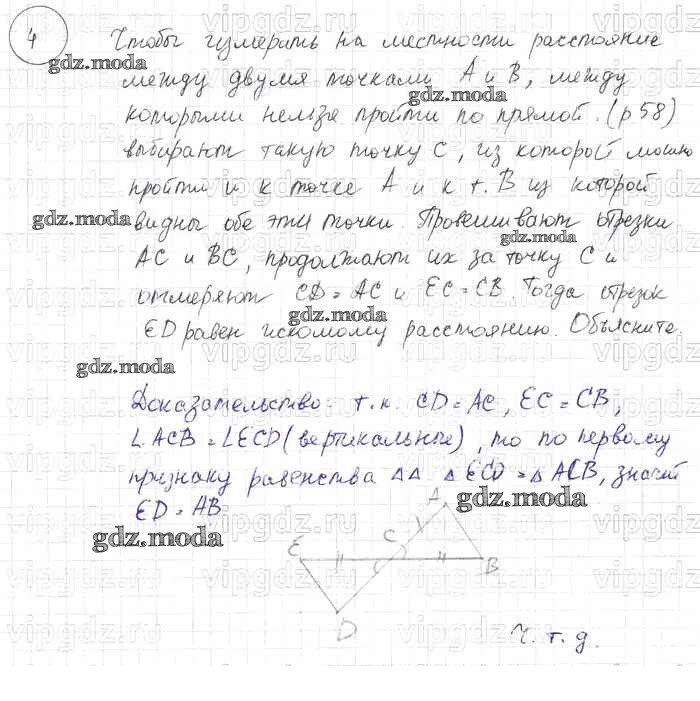 4
Чтобы измерить на местности расстояние
gdz.moda
между двумя точками А и В, между
gdz.moda
которыми нельзя пройти по прямой. (р 58)
выбирают такую точку С, из которой можно
пройти и к точке А и к т. В из которой
gdz.moda
видны обе эти точки. Провешивают отрезки
gdz.moda
АС и ВС, продолжают их за точку С и
отмеряют CD = AC и EC = CB. Тогда отрезок
gdz.moda
ED равен искомому расстоянию. Объясните.
gdz.moda
Доказательство: т.к. CD = AC, EC = CB,
∠ACB = ∠ECD (вертикальные), то по первому
признаку равенства ΔΔ ΔECD = ΔACB, значит
ED = AB
gdz.moda
gdz.moda
A
C
E
B
D
Ч. т. д.
vipgdz.ru